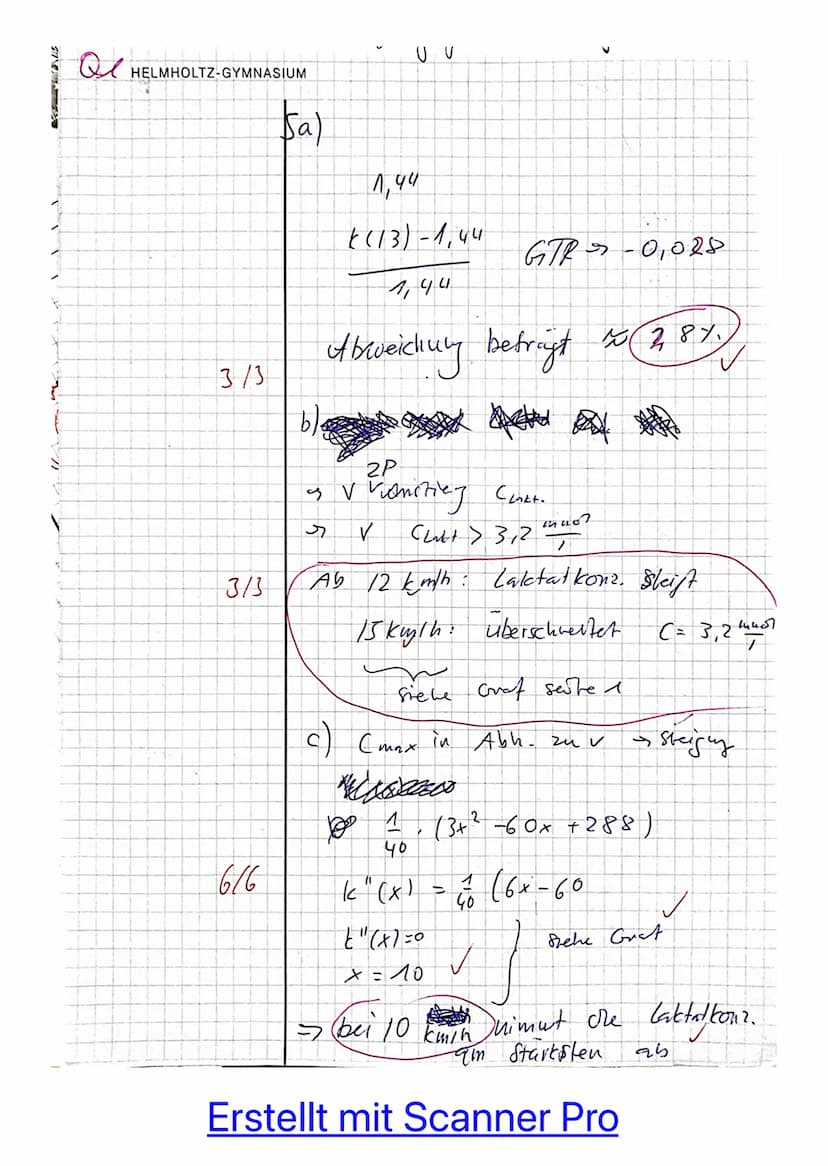 Q1 HELMHOLTZ-GYMNASIUM
5a)
1,44
k(13) - 1,44
1,44
GTR → -0,028
Abweichung beträgt ≈ 2,8%. ✓
3/3
b)
2P
→ V
→ V CLakt > 3,2 mmol/l
3/3
Ab 12 km/h: Laktatkonz. steigt
15 km/h: überschreitet C = 3,2 mmol/l
siehe Graf seite 1
c) Cmax in Abh. zu v → steigung
1/40 · (3x² - 60x + 288)
6/6
k"(x) = 1/40 (6x - 60 ✓
k"(x)=0
siehe Graf
x = 10 ✓
⇒ bei 10 km/h nimmt die Laktatkonz.
am stärksten ab
Erstellt mit Scanner Pro